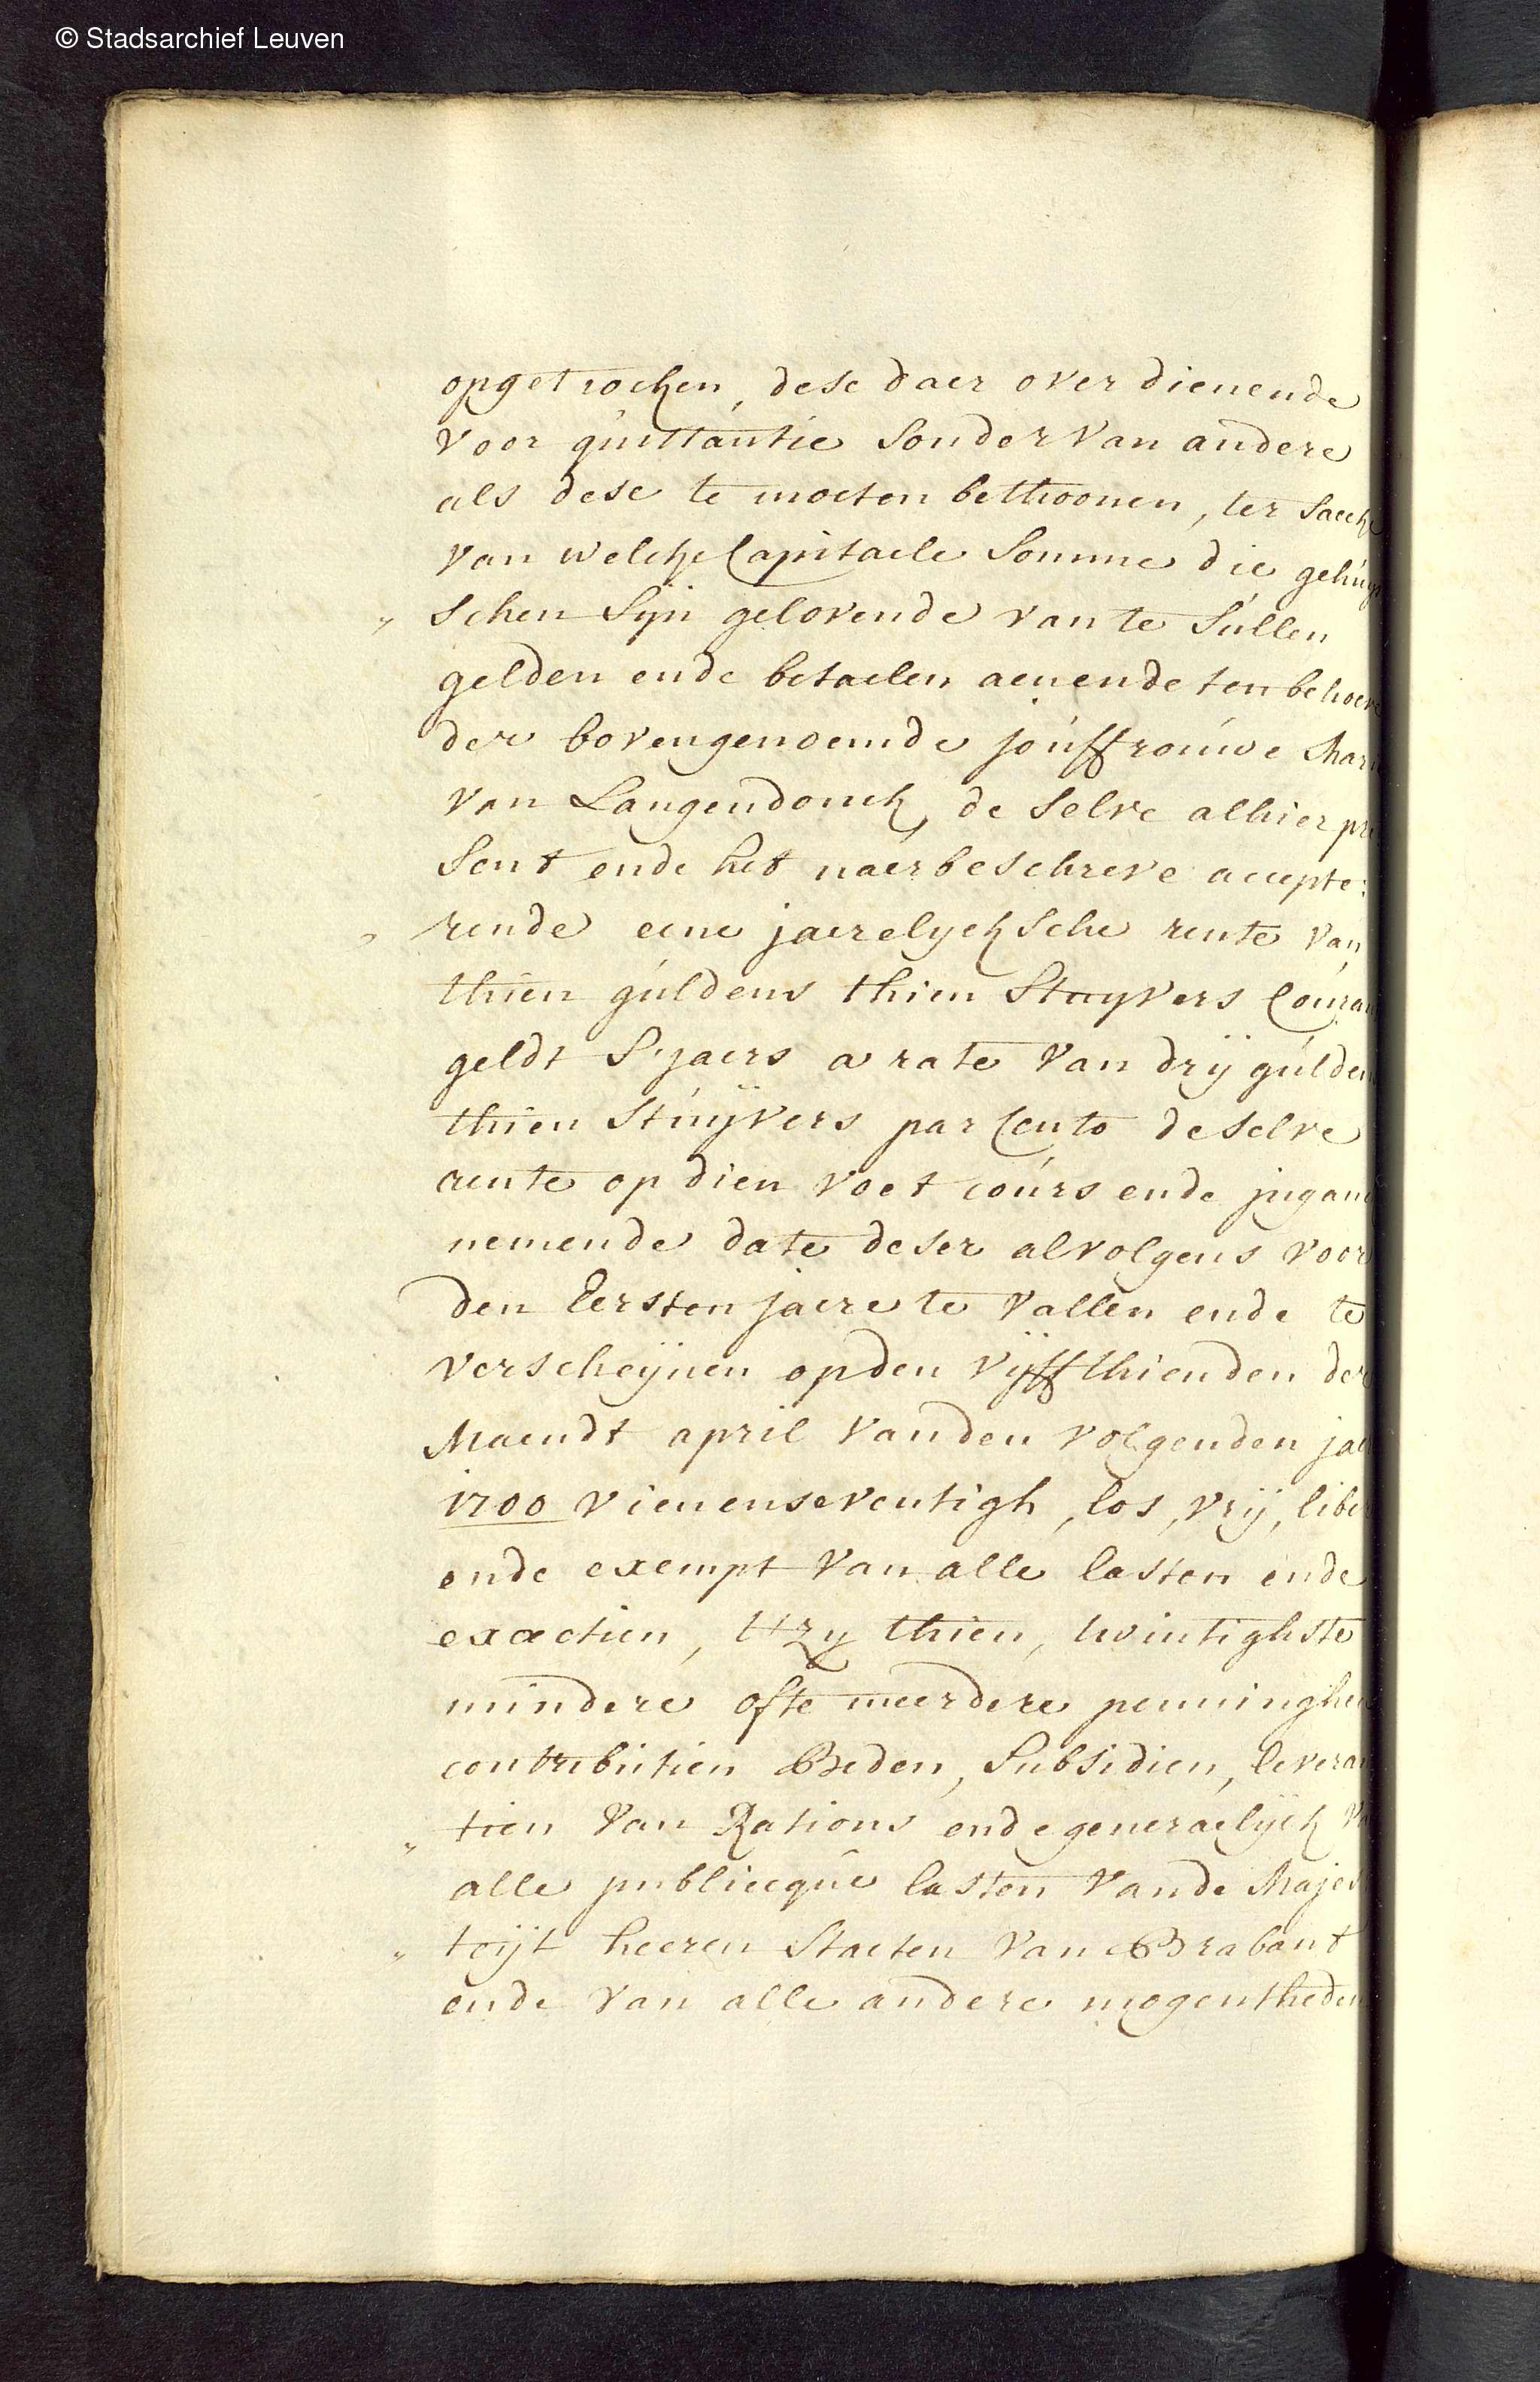 © Stadsarchief Leuven
opgetrocken, dese daer over dienende
voor quittantie sonder van andere
als dese te moeten betthoonen, ter saecke
van welcke Capitaele Somme die gehuy
„ schen sijn gelovende van te sullen
gelden ende betaelen aen ende ten behoeve
der bovengenoemde jouffrouwe Mari
van Langendonck, de selve alhier pre
sent ende het naerbeschreve accepte:
„ rende eene jaerelycksche rente van
thien guldens thien stuyvers Couran
geldt s'jaers a rate van drij gulden
thien stuijvers par Cento deselve
rente op dien voet cours ende jngand
nemende date deser alvolgens voor
den Eersten jaere te vallen ende te
verscheijnen opden vijffthienden der
Maendt april vanden volgenden jae
1700 vierenseventigh, los, vrij, liber
ende exempt van alle lasten ende
exactien, 'tzy thien, twintighste
mindere ofte meerdere penninghen
contributien Beden, subsidien, leveran
„ tien van Rations ende generaelijck va
alle publiecque lasten vande Majes
„ teijt heeren staeten van Brabant
ende van alle andere mogentheden